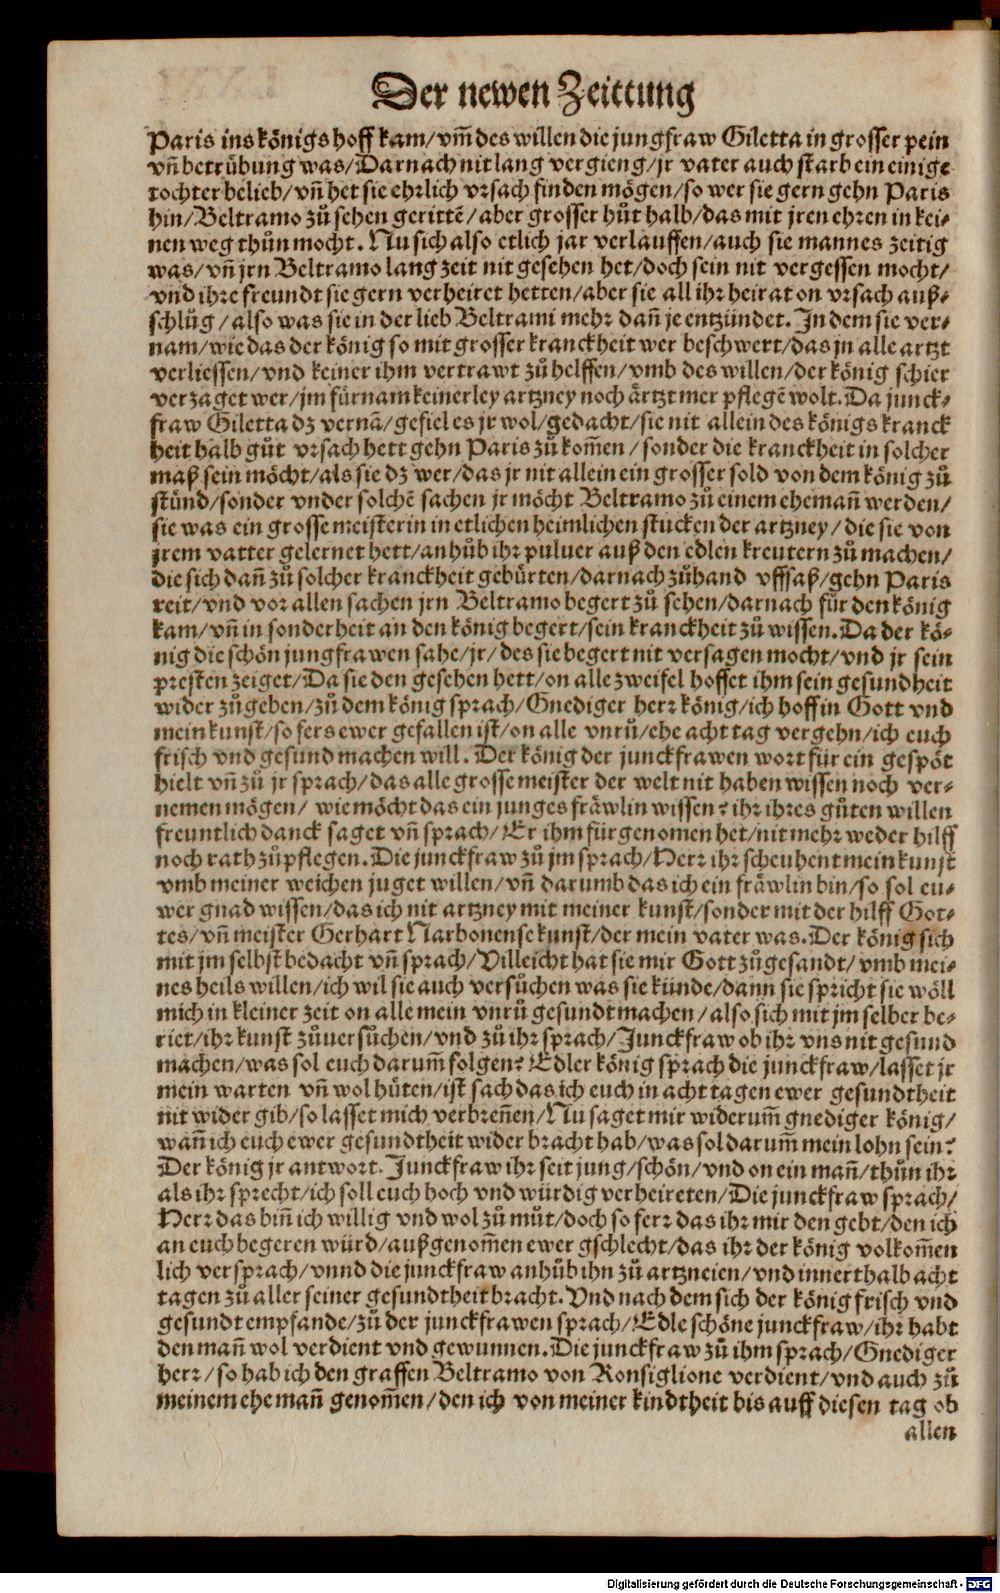 Der newen Zeittung
Paris ins königs hoff kam/ vm̃ des willen die jungfraw Giletta in grosser pein
vñ betrübung was/ Darnach nit lang vergieng/ jr vater auch starb ein einige
tochter belieb/ vñ het sie ehrlich vrsach finden mögen/ so wer sie gern gehn Paris
hin/ Beltramo zů sehen gerittē/ aber grosser hůt halb/ das mit jren ehren in kei⸗
nen weg thůn mocht. Nu sich also etlich jar verlauffen/ auch sie mannes zeitig
was/ vñ jrn Beltramo lang zeit nit gesehen het/ doch sein nit vergessen mocht/
vnd ihre freundt sie gern verheiret hetten/ aber sie all ihr heirat on vrsach auß⸗
schlůg/ also was sie in der lieb Beltrami mehr dañ je entzündet. In dem sie ver⸗
nam/ wie das der könig so mit grosser kranckheit wer beschwert/ das jn alle artzt
verliessen/ vnd keiner ihm vertrawt zů helffen/ vmb des willen/ der könig schier
verzaget wer/ jm fürnam keinerley artzney noch ärtzt mer pflegē wolt. Da junck⸗
fraw Giletta dz vernā/ gefiel es jr wol/ gedacht/ sie nit allein des königs kranck
heit halb gůt vrsach hett gehn Paris zů kom̃en/ sonder die kranckheit in solcher
maß sein möcht/ als sie dz wer/ das jr nit allein ein grosser sold von dem könig zů
stünd/ sonder vnder solchē sachen jr möcht Beltramo zů einem ehemañ werden/
sie was ein grosse meisterin in etlichen heimlichen stucken der artzney/ die sie von
jrem vatter gelernet hett/ anhůb ihr puluer auß den edlen kreutern zů machen/
die sich dañ zů solcher kranckheit gebürten/ darnach zůhand vffsaß/ gehn Paris
reit/ vnd vor allen sachen jrn Beltramo begert zů sehen/ darnach für den könig
kam/ vñ in sonderheit an den könig begert/ sein kranckheit zů wissen. Da der kö⸗
nig die schön jungfrawen sahe/ jr/ des sie begert nit versagen mocht/ vnd jr sein
presten zeiget/ Da sie den gesehen hett/ on alle zweifel hoffet ihm sein gesundheit
wider zů geben/ zů dem könig sprach/ Gnediger herr könig/ ich hoff in Gott vnd
mein kunst/ so fers ewer gefallen ist/ on alle vnrů/ ehe acht tag vergehn/ ich euch
frisch vnd gesund machen will. Der könig der junckfrawen wort für ein gespöt
hielt vñ zů jr sprach/ das alle grosse meister der welt nit haben wissen noch ver⸗
nemen mögen/ wie möcht das ein junges fräwlin wissen? ihr ihres gůten willen
freuntlich danck saget vñ sprach/ Er ihm fürgenomen het/ nit mehr weder hilff
noch rath zůpflegen. Die junckfraw zů jm sprach/ Herr ihr scheuhent mein kunst
vmb meiner weichen juget willen/ vñ darumb das ich ein fräwlin bin/ so sol eu⸗
wer gnad wissen/ das ich nit artzney mit meiner kunst/ sonder mit der hilff Got⸗
tes/ vñ meister Gerhart Narbonense kunst/ der mein vater was. Der könig sich
mit jm selbst bedacht vñ sprach/ Villeicht hat sie mir Gott zůgesandt/ vmb mei⸗
nes heils willen/ ich wil sie auch versůchen was sie künde/ dann sie spricht sie wöll
mich in kleiner zeit on alle mein vnrů gesundt machen/ also sich mit jm selber be⸗
riet/ ihr kunst zůuersůchen/ vnd zů ihr sprach/ Junckfraw ob ihr vns nit gesund
machen/ was sol euch darum̃ folgen? Edler könig sprach die junckfraw/ lasset jr
mein warten vñ wol hüten/ ist sach das ich euch in acht tagen ewer gesundtheit
nit wider gib/ so lasset mich verbreñen/ Nu saget mir widerum̃ gnediger könig/
wañ ich euch ewer gesundtheit wider bracht hab/ was sol darum̃ mein lohn sein?
Der könig jr antwort. Junckfraw ihr seit jung/ schön/ vnd on ein mañ/ thůn ihr
als ihr sprecht/ ich soll euch hoch vnd würdig verheireten/ Die junckfraw sprach/
Herr das biñ ich willig vnd wol zů můt/ doch so ferr das ihr mir den gebt/ den ich
an euch begeren würd/ außgenom̃en ewer gschlecht/ das ihr der könig volkom̃en
lich versprach/ vnnd die junckfraw anhůb ihn zů artzneien/ vnd innerthalb acht
tagen zů aller seiner gesundtheit bracht. Vnd nach dem sich der könig frisch vnd
gesundt empfande/ zů der junckfrawen sprach/ Edle schöne junckfraw/ ihr habt
den mañ wol verdient vnd gewunnen. Die junckfraw zů ihm sprach/ Gnediger
herr/ so hab ich den graffen Beltramo von Ronsiglione verdient/ vnd auch zů
meinem ehemañ genom̃en/ den ich von meiner kindtheit bis auff diesen tag ob
allen
Digitalisierung gefördert durch die Deutsche Forschungsgemeinschaft - DFG